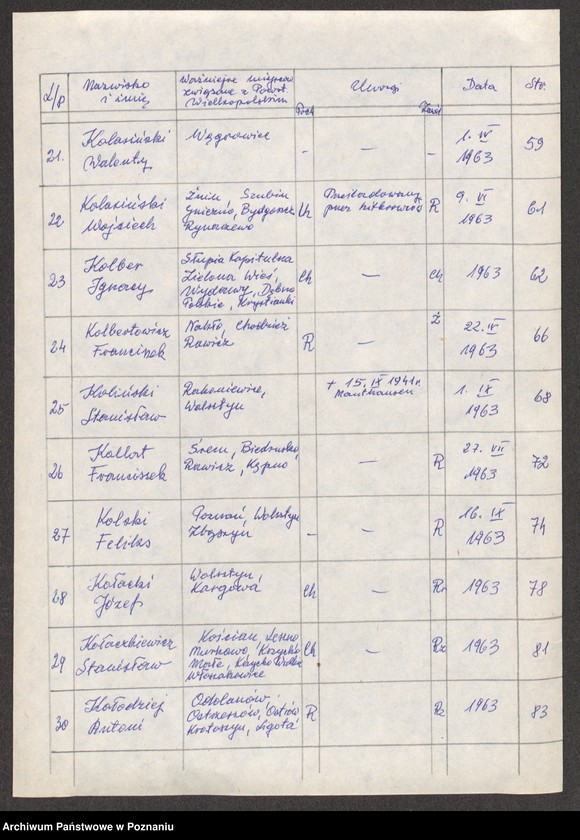 L/p Nazwisko i imię Ważniejsze miejsca związane z Powst. Wielkopolskim Poch Uwagi Zawód Data Str.
21. Kolasiński Walenty Wągrowiec - — - 1. IV 1963 59
22 Kolasiński Wojciech Żnin Szubin Gniezno, Bydgoszcz Rynarzewo Ch przez hitlerowców R 9. VI 1963 61
23 Kolber Ignacy Słupia Kapitulna Zielona Wieś, Wydawy, Dębno Polskie, Krystianki Ch — Ch 1963 62
24 Kolbertowicz Franciszek Nakło, Chodzież Rawicz R — Ż 22. IV 1963 66
25 Koliński Stanisław Rakoniewice, Wolsztyn + 15. IX 1941 r. Mauthausen 1. IX 1963 68
26 Kollat Franciszek Śrem, Biedrusko, Rawicz, Kępno — R 27. VII 1963 72
27 Kolski Feliks Poznań, Wolsztyn Zbąszyń - — R 16. IX 1963 74
28 Kołacki Józef Wolsztyn, Kargowa Ch — Rz 1963 78
29 Kołaczkiewicz Stanisław Kościan, Leszno Murkowo, Krzycko Małe, Krzycko Wielkie Włoszakowice Ch — Rz 1963 81
30 Kołodziej Antoni Odolanów Ostrzeszów, Ostrów Krotoszyn, Ligota R Rz 1963 83
Archiwum Państwowe w Poznaniu